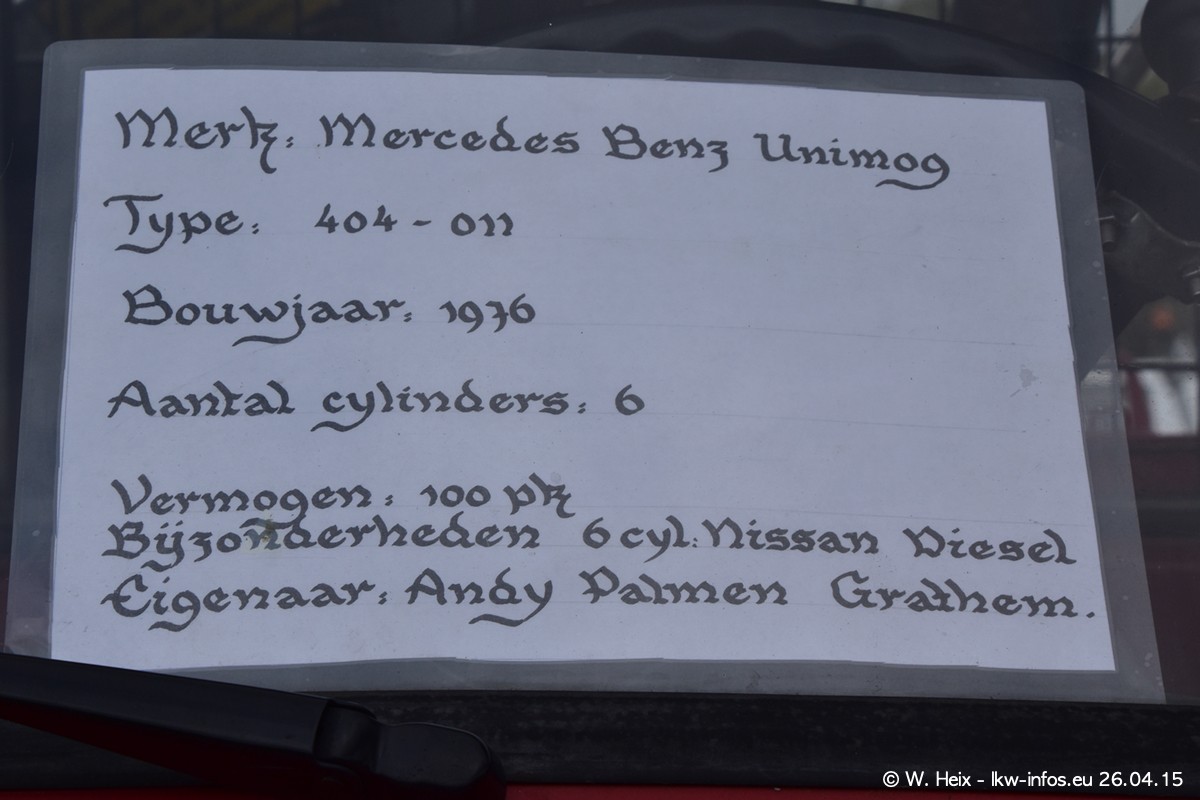 Merk: Mercedes Benz Unimog
Type: 404-011
Bouwjaar: 1976
Aantal cylinders: 6
Vermogen: 100 pk
Bijzonderheden 6 cyl. Nissan Diesel
Eigenaar: Andy Palmen Grathem.
© W. Heix - lkw-infos.eu 26.04.15